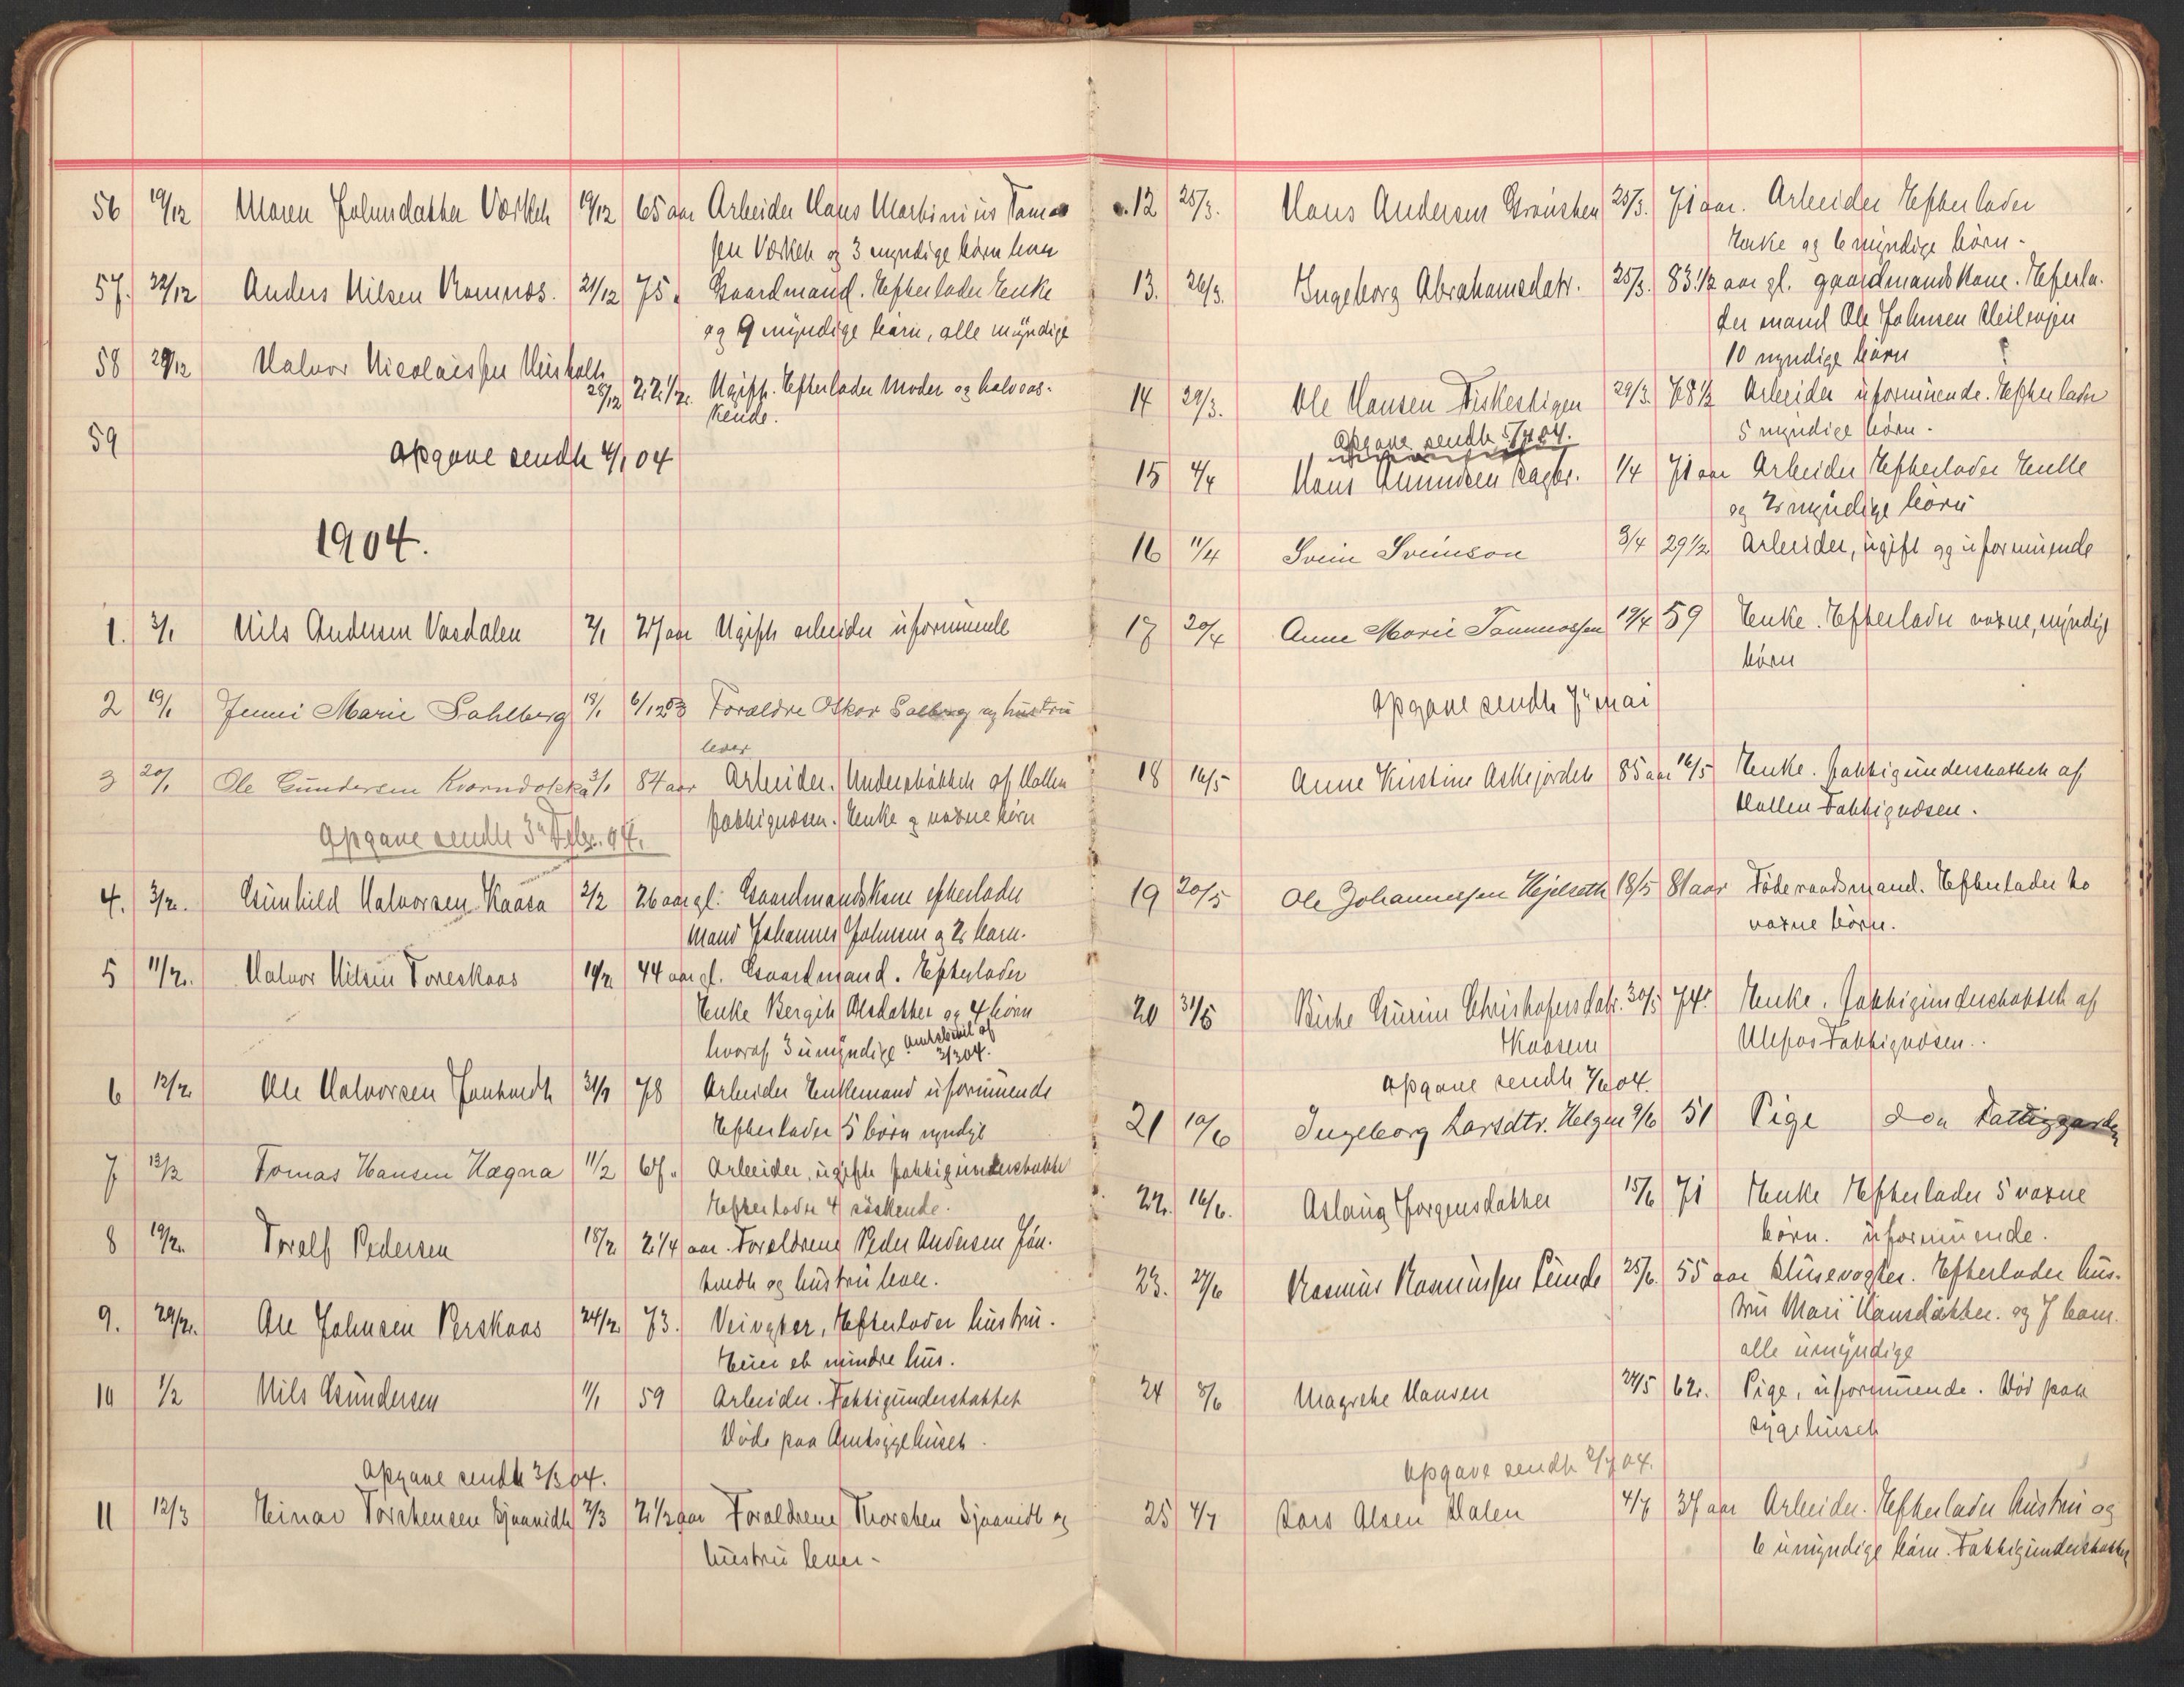 56 19/12 Maren Johnsdatter Værket 19/12 65 aar Arbeider Hans Martinius Tomas
sen Værket og 3 myndige børn lever
57. 22/12 Anders Nilsen Romnæs. 21/12 75 " Gaardmand. Efterlader Enke
og 9 myndige børn, alle myndige
58 29/12 Halvor Nicolaissen
28/12 22 1/2. Ugift. Efterlader Moder og halvsøs-
kende.
59
Opgave sendt 4/1 04
1904.
1. 3/1 Nils Andersen Vasdalen 2/1 27 aar Ugift arbeider uformuende
2 19/1 Jenni Marie Sahlberg 18/1 6/12 03 Forældre Oskar Salberg og hustru
lever
3 20/1 Ole Gundersen 3/1 84 aar Arbeider. Understøttet af Hollen
fattigvæsen. Enke og voxne børn
Opgave sendt 3die Febr. 04.
4. 3/2. Gunhild Halvorsen Kaasa 2/2 26 aar gl. Gaardmandskone efterlader
Mand Johannes Johnsen og 2 børn.
5 11/2. Halvor Nilsen Toreskaas 10/2 44 aar gl. Gaardmand. Efterlader
Enke Bergit Olsdatter og 4 børn
hvoraf 3 umyndige. af
3/3 04.
6 12/2 Ole Halvorsen Jønholdt 31/1 78 Arbeider Enkemand uformuende
Efterlader 5 børn myndige
7 13/2 Tomas Hansen Hægna 11/2 67 " Arbeider, ugift fattigunderstøtte
Efterlader 4 søskende.
8 19/2. Torolf Pedersen 18/2 2 1/4 aar. Forældrene Peder Andersen Jøn-
holdt og hustru lever.
9. 29/2. Ole Johnsen Perskaas 24/2 73. Veivogter, Efterlader hustru.
Eier et mindre hus.
10 1/2 Nils Gundersen 11/1 59 Arbeider. Fattigunderstøttet
Døde paa Amtsygehuset.
Opgave sendt 3/3 04.
11 12/3 Einar Torstensen 2/3 2 1/2 aar Forældrene Thorsten og
hustru lever -
12 25/3. Hans Andersen 25/3. 71 aar. Arbeider Efterlader
Enke og 6 myndige børn -
13. 26/3. Ingeborg Abrahamsdatr. 25/3. 83 1/2 aar gl. gaardmandskone. Efterla-
der mand Ole Johnsen
10 myndige børn
14 29/3. Ole Hansen Fiskestigen 29/3. 78 1/2 Arbeider uformuende. Efterlader
5 myndige børn -
Opgave sendt 5/4 04.
15 4/4 Hans Amundsen 1/4 71 aar Arbeider Efterlader Enke
og 2 myndige børn
16 11/4 Svein Sveinson 3/4 29 1/2 Arbeider, ugift og uformuende
17 20/4 Anne Marie Tommassen 19/4 59 Enke. Efterlader voxne, myndige
børn
Opgave sendt 7de mai
18 16/5 Anne Kirstine Askejordet 85 aar 16/5 Enke. fattigunderstøttet af
Hollen Fattigvæsen.
19 20/5 Ole Johannessen Hejelseth 18/5 81 aar Føderaadsmand. Efterlader to
voxne børn.
20 31/5 Birte Gurine Christofersdatr. 30/5 74 Enke. fattigunderstøttet af
Kaasene Ulefos Fattigvæsen.
Opgave sendt 7/6 04.
21 10/6 Ingeborg Larsdtr. Helgen 9/6 51 Pige paa Fattiggarden
22. 16/6. Aslaug Jørgensdatter 15/6 71 Enke Efterlader 5 voxne
børn. uformuende.
23. 27/6 Rasmus Rasmussen Lunde 25/6. 55 aar Slusevogter. Efterlader hus-
tru Mari Hansdatter. og 7 børn.
alle umyndige
24 8/6 Magrete Hansen 24/5 62. Pige, uformuende. Død paa
sygehuset
Opgave sendt 2/7 04.
25 4/7 Lars Olsen Dalen 4/7 37 aar Arbeider. Efterlader hustru og
6 umyndige børn. Fattigunderstøttet